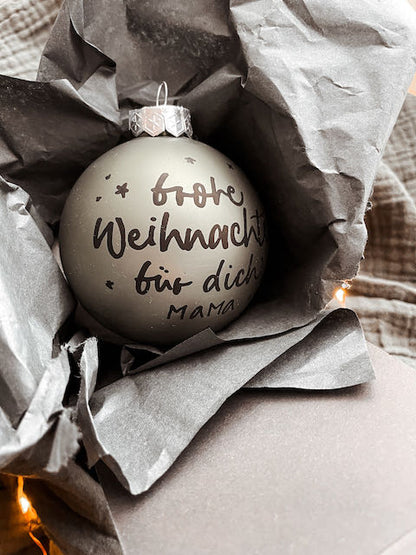 frohe
Weihnacht
für dich
MAMA